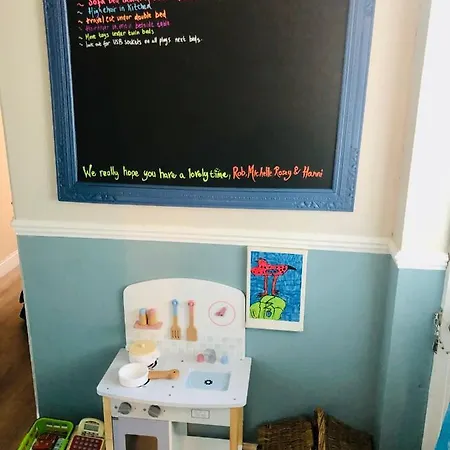 ~ Sofa bed
~ Highchair in Kitchen
~ travel cot under double bed
~ More toys under twin beds
~ look out for USB sockets on all plugs next beds.
We really hope you have a lovely time, Rob, Michelle Rosey & Hanni